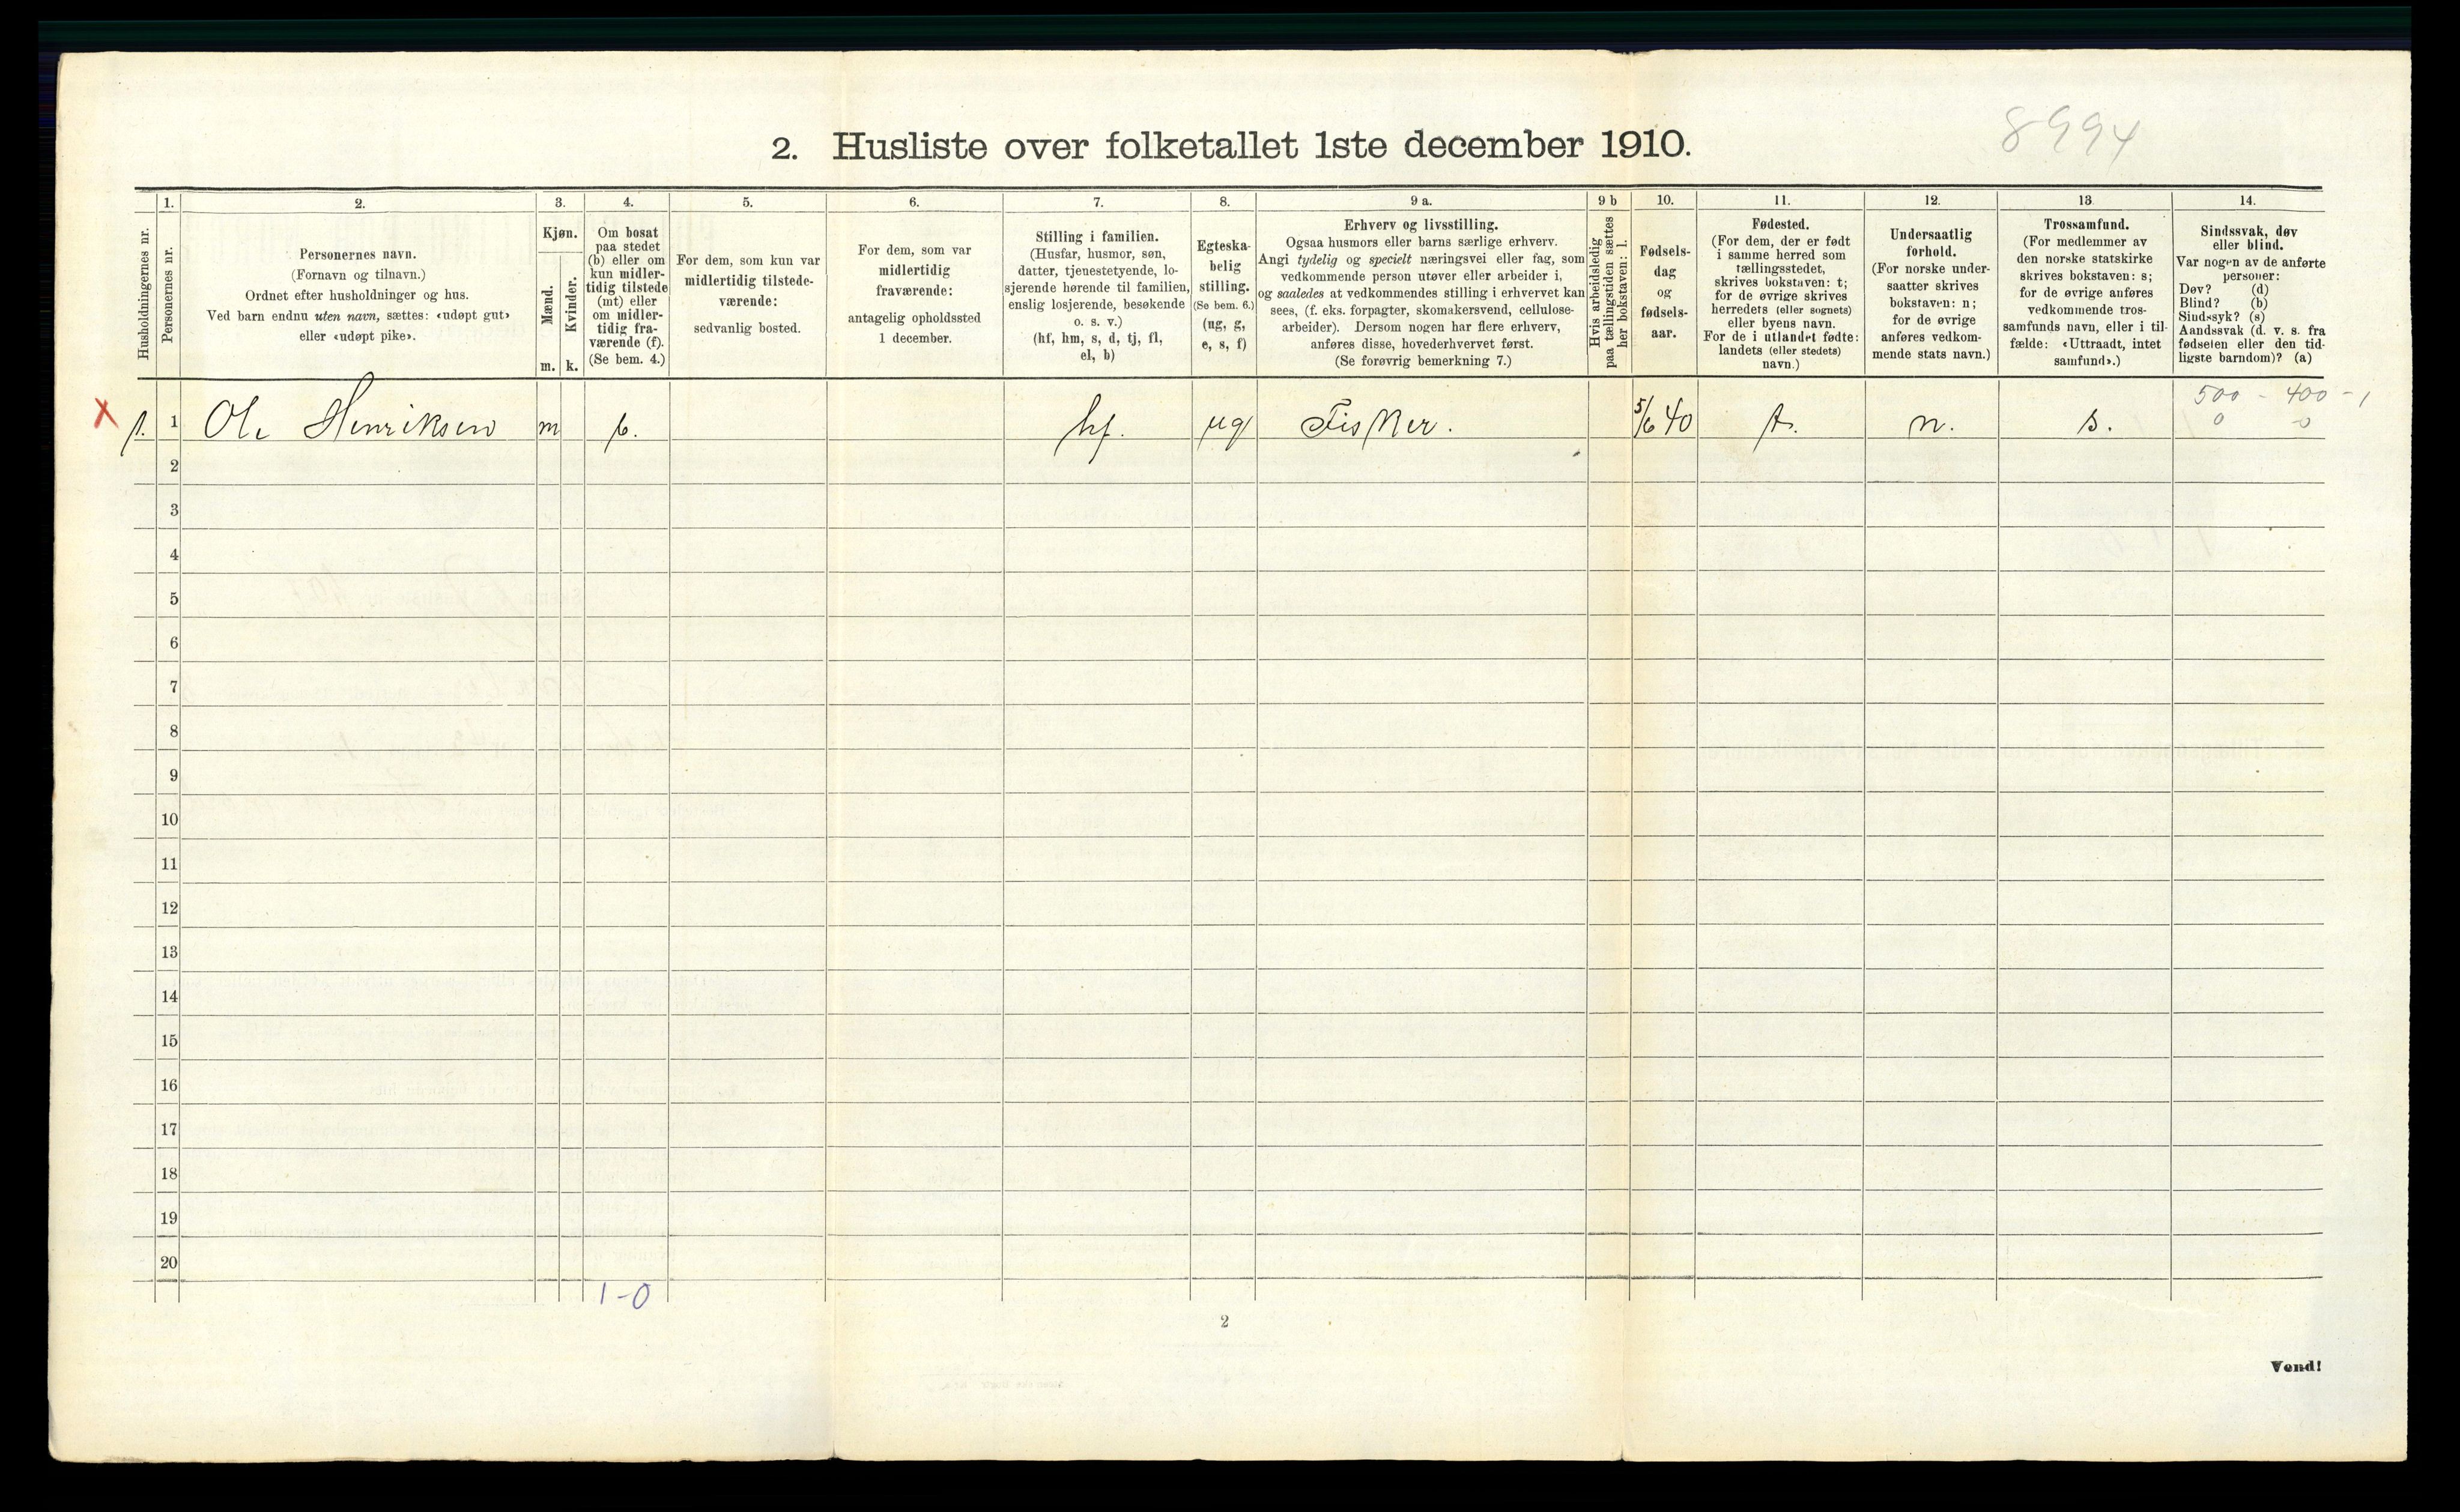 8994
2. Husliste over folketallet 1ste december 1910.
1. 2. 3. 4. 5. 6. 7. 8. 9 a. 9 b 10. 11. 12. 13 14.
Husholdningernes nr.
Personernes nr.
Personernes navn.
(Fornavn og tilnavn.)
Ordnet efter husholdninger og hus.
Ved barn endnu uten navn, sættes: «udøpt gut»
eller «udøpt pike».
Kjøn.
Mænd.
Kvinder.
m. k.
Om bosat
paa stedet
(b) eller om
kun midler-
tidig tilstede
(mt) eller
om midler-
tidig fra-
værende (f).
(Se bem. 4.)
For dem, som kun var
midlertidig tilstede-
værende:
sedvanlig bosted.
For dem, som var
midlertidig
fraværende:
antagelig opholdssted
1 december.
Stilling i familien.
(Husfar, husmor, søn,
datter, tjenestetyende, lo-
sjerende hørende til familien,
enslig losjerende, besøkende
o. s. v.)
(hf, hm, s, d, tj, fl,
el, b)
Egteska-
belig
stilling.
(Se bem. 6.)
(ug, g,
e, s, f)
Erhverv og livsstilling.
Ogsaa husmors eller barns særlige erhverv.
Angi tydelig og specielt næringsvei eller fag, som
vedkommende person utøver eller arbeider i,
og saaledes at vedkommendes stilling i erhvervet kan
sees, (f. eks. forpagter, skomakersvend, cellulose-
arbeider). Dersom nogen har flere erhverv,
anføres disse, hovederhvervet først.
(Se forøvrig bemerkning 7.)
Hvis arbeidsledig
paa tællingstiden sættes
her bokstaven: l.
Fødsels-
dag
og
fødsels-
aar.
Fødested.
(For dem, der er født
i samme herred som
tællingsstedet,
skrives bokstaven: t;
for de øvrige skrives
herredets (eller sognets)
eller byens navn.
For de i utlandet fødte:
landets (eller stedets)
navn.)
Undersaatlig
forhold.
(For norske under-
saatter skrives
bokstaven: n;
for de øvrige
anføres vedkom-
mende stats navn.)
Trossamfund.
(For medlemmer av
den norske statskirke
skrives bokstaven: s;
for de øvrige anføres
vedkommende tros-
samfunds navn, eller i til-
fælde: «Uttraadt, intet
samfund».)
Sindssvak, døv
eller blind.
Var nogen av de anførte
personer:
Døv? (d)
Blind? (b)
Sindssyk? (s)
Aandssvak (d. v. s. fra
fødselen eller den tid-
ligste barndom)? (a)
500 - 400 - 1
0 0
X 1. 1 Ole Henriksen m b. hf. ug Fisker. 5/6 40 t. n. s.
2
3
4
5
6
7
8
9
10
11
12
13
14
15
16
17
18
19
20
1-0
2
Vend!